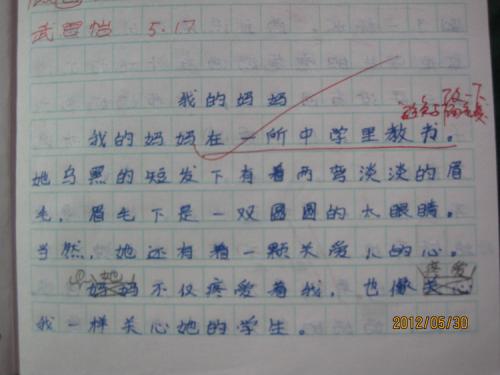 武思怡 5.17
我的妈妈
改一下
我的妈妈在一所中学里教书。
她乌黑的短发下有着两弯淡淡的眉
毛,眉毛下是一双圆圆的大眼睛。
当然,她还有着一颗关爱人的心。
她 疼爱
妈妈不仅疼爱着我,也像关心
我一样关心她的学生。
2012/05/30